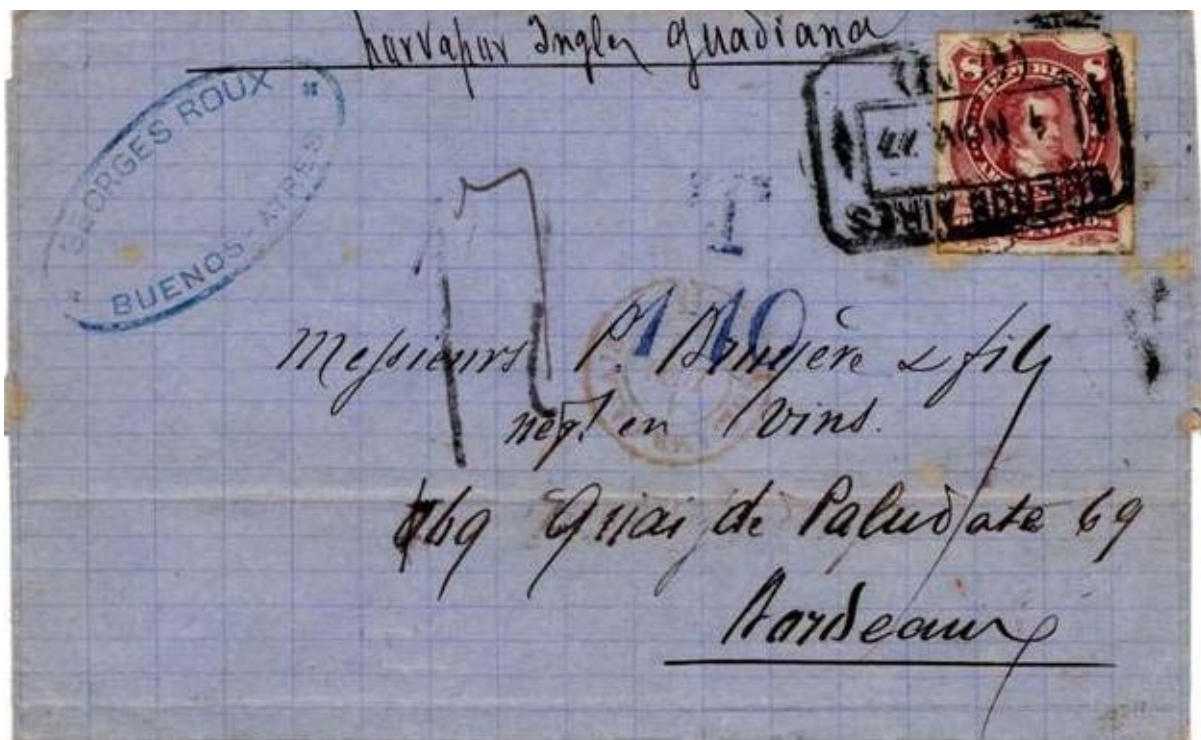 por vapor Ingles Guadiana
GEORGES ROUX
BUENOS-AIRES
8 8
4 NOV 77
BUENOS AIRES
T
17
110
Messieurs P. Bruyère & fils
négt en vins.
69 Quai de Paludate 69
Bordeaux